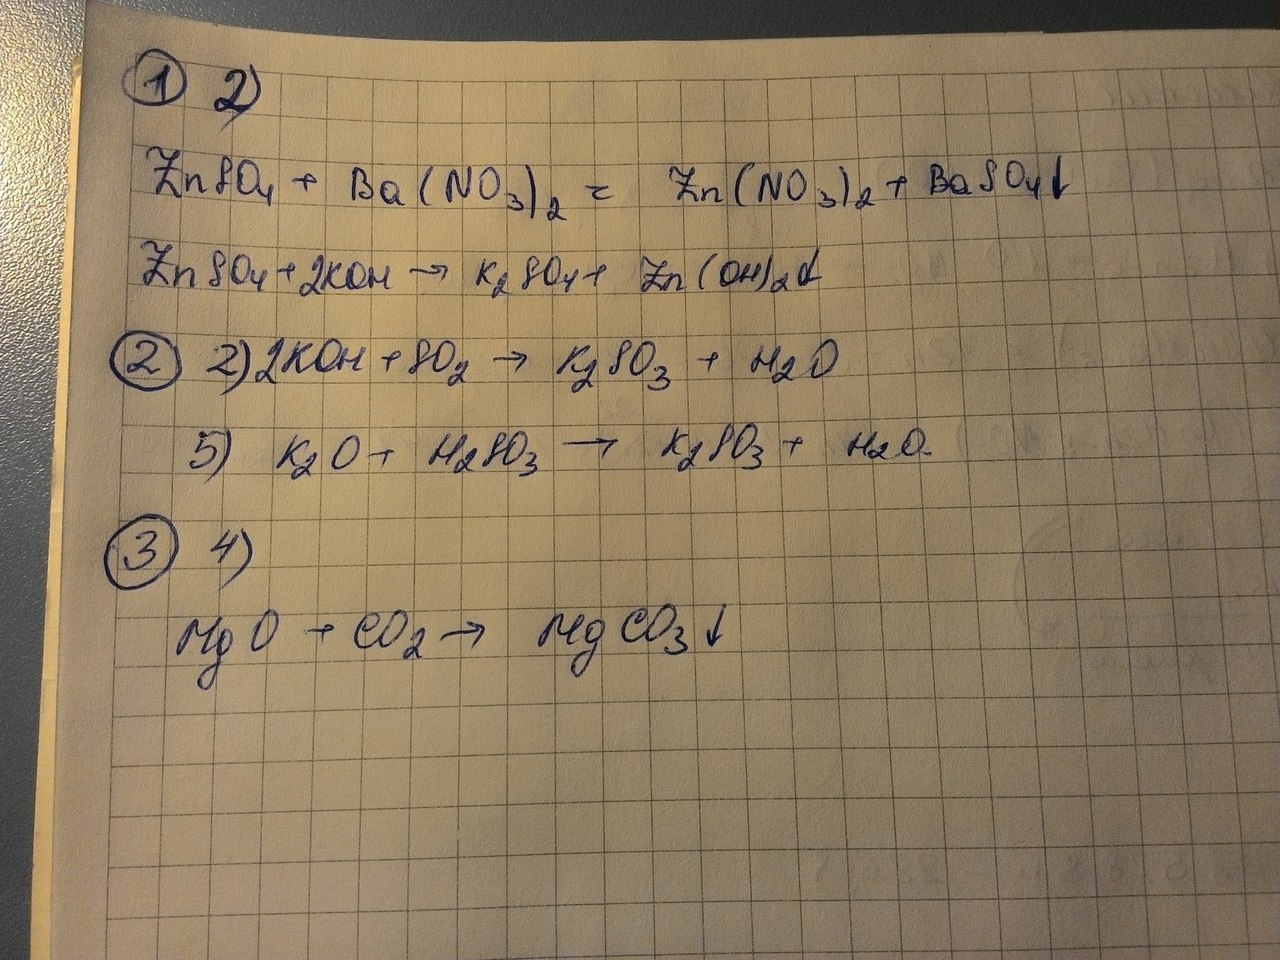 ① 2)
ZnSO4 + Ba(NO3)2 = Zn(NO3)2 + BaSO4↓
ZnSO4 + 2KOH → K2SO4 + Zn(OH)2↓
② 2) 2KOH + SO2 → K2SO3 + H2O
5) K2O + H2SO3 → K2SO3 + H2O
③ 4)
MgO + CO2 → MgCO3↓